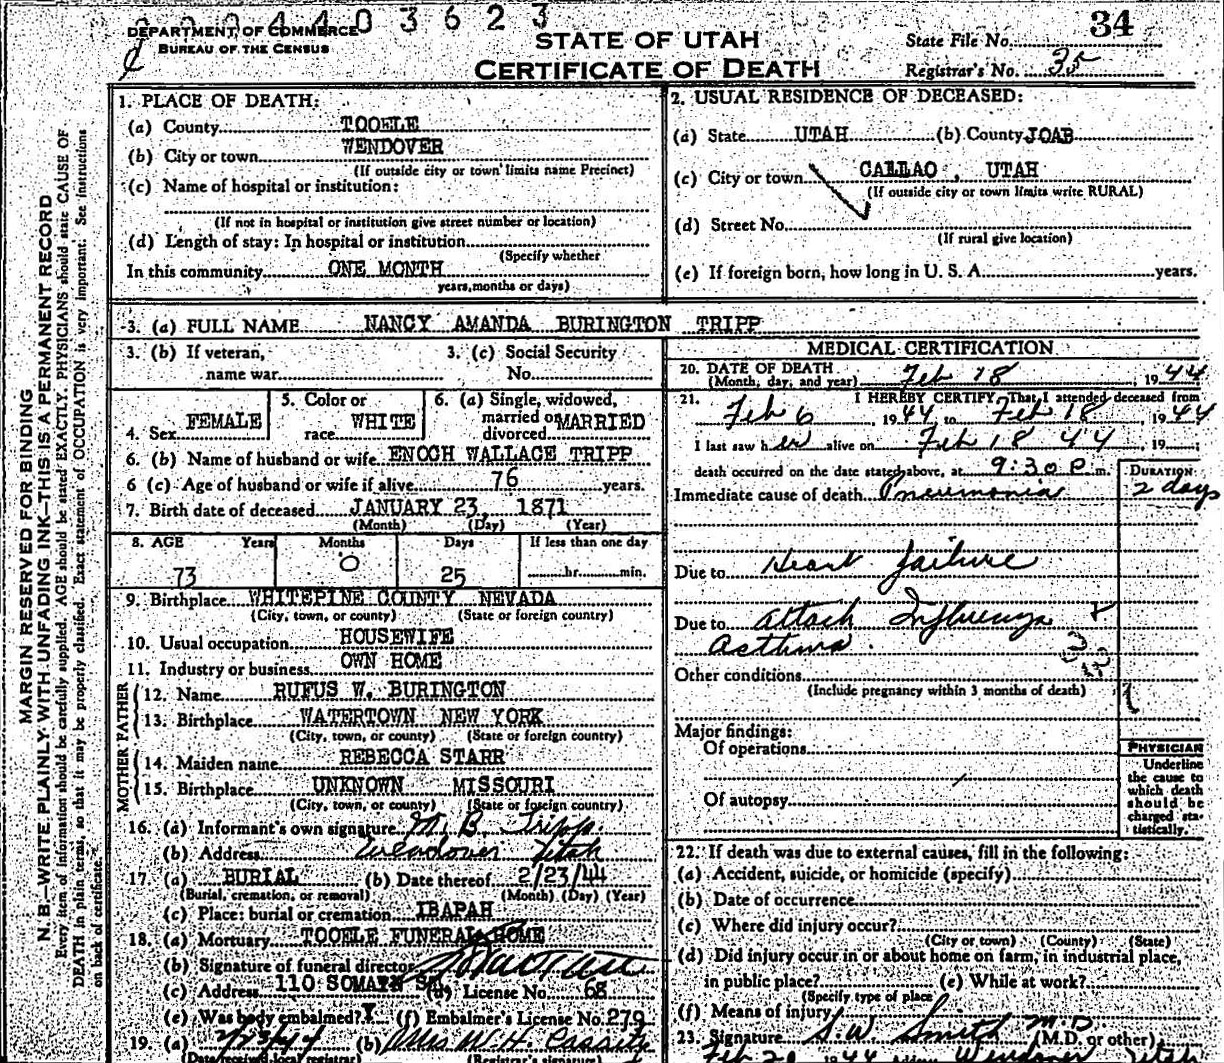 2 2 4 4 0 3 6 2 3
DEPARTMENT OF COMMERCE
BUREAU OF THE CENSUS
STATE OF UTAH
CERTIFICATE OF DEATH
34
State File No.
Registrar's No. 35
MARGIN RESERVED FOR BINDING
N. B.—WRITE PLAINLY WITH UNFADING INK—THIS IS A PERMANENT RECORD
Every item of information should be carefully supplied. AGE should be stated EXACTLY. PHYSICIANS should state CAUSE OF
DEATH in plain terms, so that it may be properly classified. Exact statement of OCCUPATION is very important. See instructions
on back of certificate.
1. PLACE OF DEATH:
(a) County TOOELE
(b) City or town WENDOVER
(If outside city or town limits name Precinct)
(c) Name of hospital or institution:
(If not in hospital or institution give street number or location)
(d) Length of stay: In hospital or institution
(Specify whether
In this community ONE MONTH
years, months or days)
2. USUAL RESIDENCE OF DECEASED:
(a) State UTAH (b) County JOAB
(c) City or town CALLAO, UTAH
(If outside city or town limits write RURAL)
(d) Street No.
(If rural give location)
(e) If foreign born, how long in U. S. A. years.
3. (a) FULL NAME NANCY AMANDA BURINGTON TRIPP
3. (b) If veteran,
name war
3. (c) Social Security
No.
4. Sex FEMALE
5. Color or
race WHITE
6. (a) Single, widowed,
married or
divorced MARRIED
6. (b) Name of husband or wife ENOCH WALLACE TRIPP
6 (c) Age of husband or wife if alive 76 years.
7. Birth date of deceased JANUARY 23, 1871
(Month) (Day) (Year)
8. AGE Years Months Days If less than one day
73 0 25 hr. min.
9. Birthplace WHITEPINE COUNTY NEVADA
(City, town, or county) (State or foreign country)
10. Usual occupation HOUSEWIFE
11. Industry or business OWN HOME
FATHER
12. Name RUFUS W. BURINGTON
13. Birthplace WATERTOWN NEW YORK
(City, town, or county) (State or foreign country)
MOTHER
14. Maiden name REBECCA STARR
15. Birthplace UNKNOWN MISSOURI
(City, town, or county) (State or foreign country)
16. (a) Informant's own signature M. B. Tripp
(b) Address Wendover Utah
17. (a) BURIAL (b) Date thereof 2/23/44
(Burial, cremation, or removal) (Month) (Day) (Year)
(c) Place: burial or cremation IBAPAH
18. (a) Mortuary TOOELE FUNERAL HOME
(b) Signature of funeral director
(c) Address 110 SO MAIN (d) License No. 68
(e) Was body embalmed? (f) Embalmer's License No. 279
19. (a) (b)
(Date received local registrar) (Registrar's signature)
MEDICAL CERTIFICATION
20. DATE OF DEATH
(Month, day, and year) Feb 18, 1944
21. I HEREBY CERTIFY, That I attended deceased from
Feb 6, 1944 to Feb 18, 1944
I last saw her alive on Feb 18 44, 19
death occurred on the date stated above, at 9:30 P. m.
DURATION
Immediate cause of death Pneumonia 2 days
Due to Heart failure
Due to attack Influenza &
Asthma.
Other conditions
(Include pregnancy within 3 months of death)
Major findings:
Of operations
Of autopsy
PHYSICIAN
Underline
the cause to
which death
should be
charged sta-
tistically.
22. If death was due to external causes, fill in the following:
(a) Accident, suicide, or homicide (specify)
(b) Date of occurrence
(c) Where did injury occur?
(City or town) (County) (State)
(d) Did injury occur in or about home on farm, in industrial place,
in public place? (e) While at work?
(Specify type of place)
(f) Means of injury
23. Signature S. W. Smith M.D. (M.D. or other)
Feb 1944